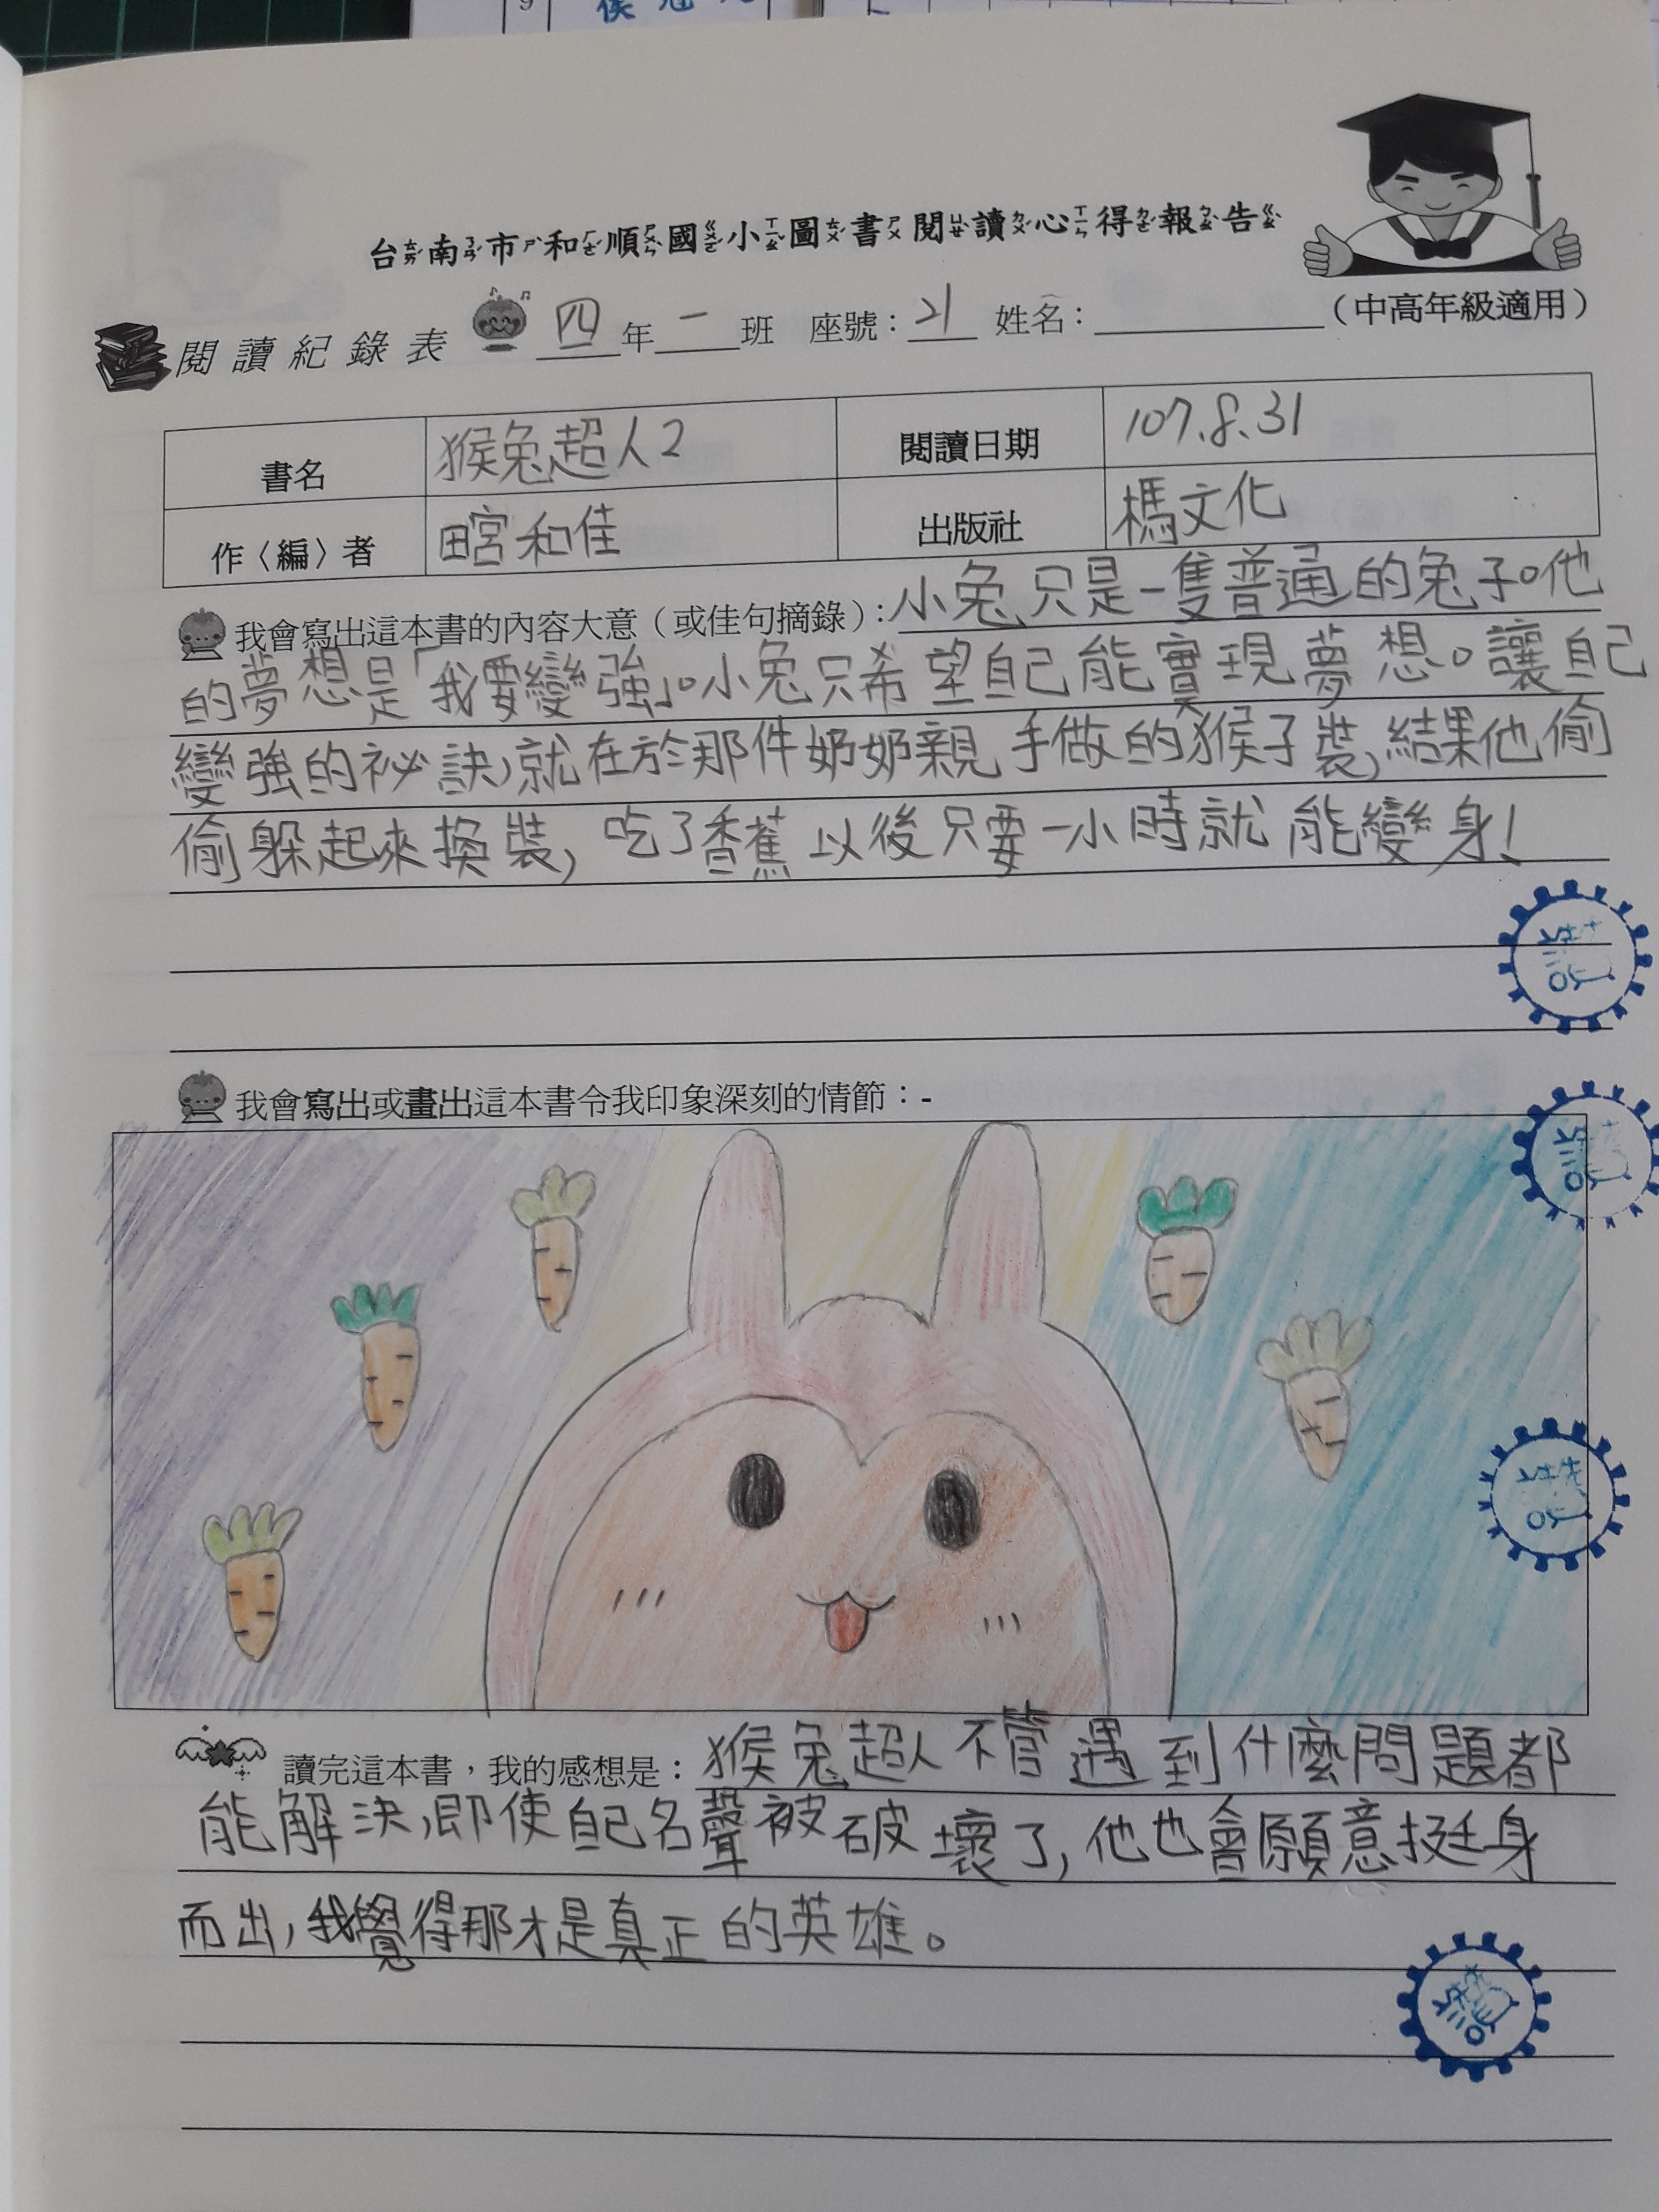 9
台南市和順國小圖書閱讀心得報告
閱讀紀錄表 四年一班 座號：21 姓名：（中高年級適用）
書名 猴兔超人2 閱讀日期 107.8.31
作〈編〉者 宮和佳 出版社 文化
我會寫出這本書的內容大意（或佳句摘錄）：小兔只是一隻普通的兔子。他
的夢想是「我要變強」。小兔只希望自己能實現夢想。讓自己
變強的祕訣，就在於那件奶奶親手做的猴子裝，結果他偷
偷躲起來換裝，吃了香蕉以後只要一小時就能變身！
讚
我會寫出或畫出這本書令我印象深刻的情節：-
讚
讚
讀完這本書，我的感想是：猴兔超人不管遇到什麼問題都
能解決，即使自己名聲被破壞了，他也會願意挺身
而出，我覺得那才是真正的英雄。
讚